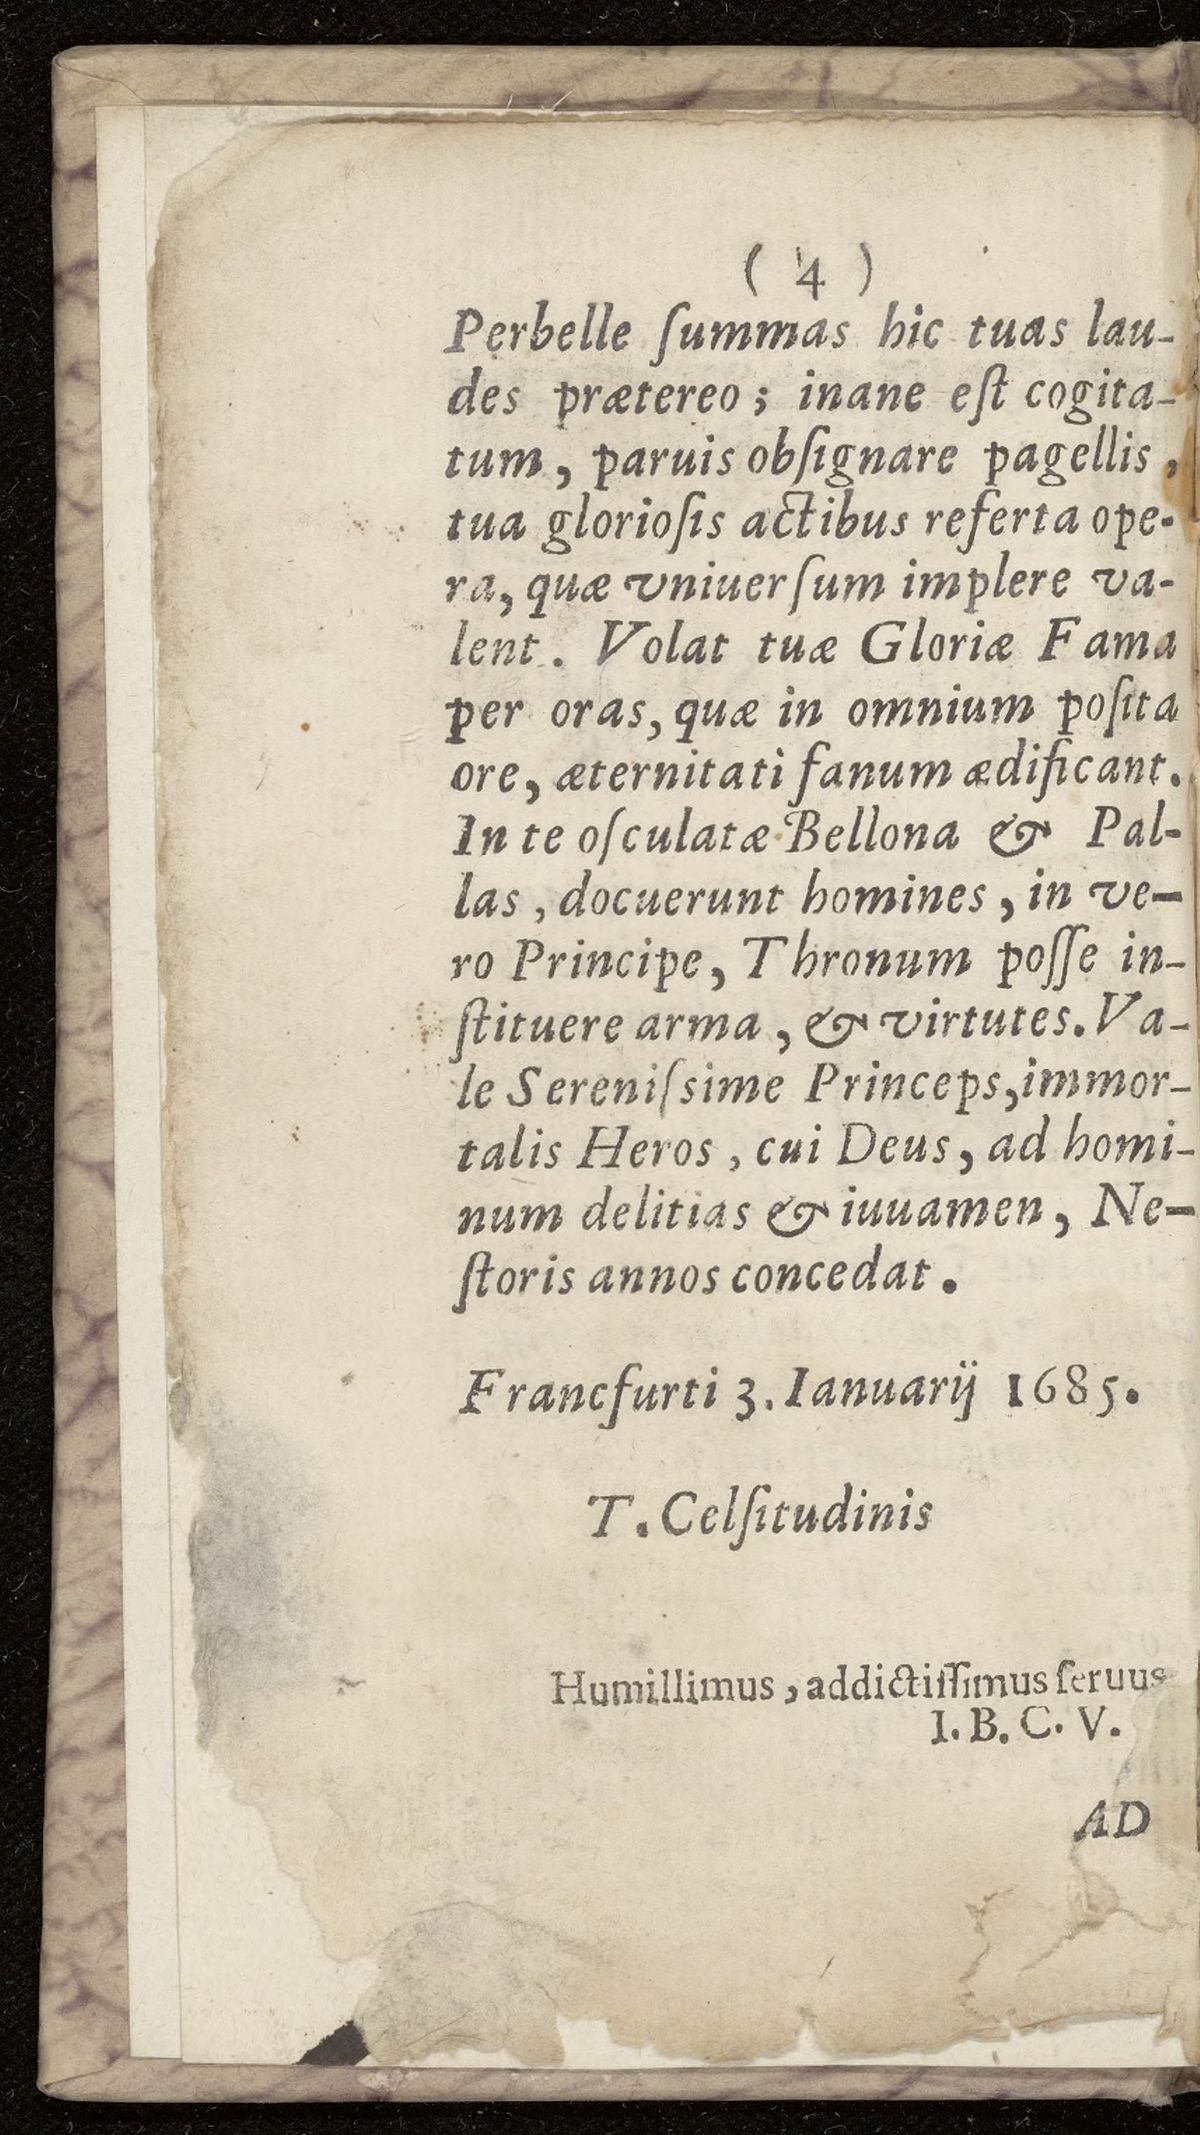 ( 4 )
Perbelle ſummas hic tuas lau-
des prætereo; inane eſt cogita-
tum, paruis obſignare pagellis,
tua glorioſis actibus referta ope-
ra, quæ vniuerſum implere va-
lent. Volat tuæ Gloriæ Fama
per oras, quæ in omnium poſita
ore, æternitati fanum ædificant.
In te oſculatæ Bellona & Pal-
las, docuerunt homines, in ve-
ro Principe, Thronum poſſe in-
ſtituere arma, & virtutes. Va-
le Sereniſsime Princeps, immor-
talis Heros, cui Deus, ad homi-
num delitias & iuuamen, Ne-
ſtoris annos concedat.
Francfurti 3. Ianuarij 1685.
T. Celſitudinis
Humillimus, addictiſſimus ſeruus
I. B. C. V.
AD